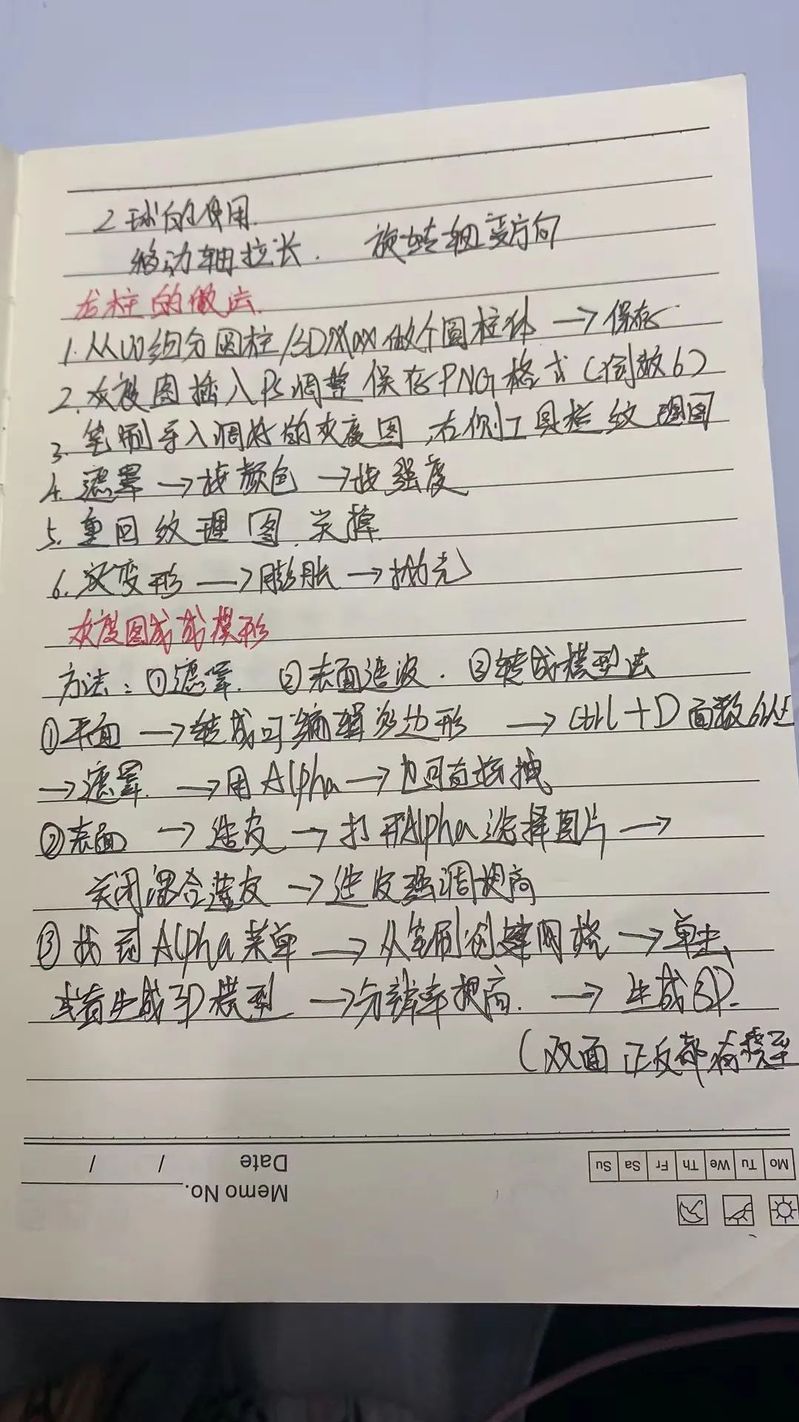 2 球的使用
移动轴拉长. 旋转轴变方向
龙柱的做法.
1. 从UV细分圆柱/3DMax做个圆柱体 → 保存
2. 灰度图插入PS调整保存PNG格式(倒数6)
3. 笔刷导入调好的灰度图,右侧工具栏纹理图
4. 遮罩 → 按颜色 → 按强度
5. 重回纹理图 关掉
6. 变形 → 膨胀 → 抛光
灰度图形成模形
方法: ①遮罩. ②表面造波. ③转成模型法
①平面 → 转成可编辑多边形 → Ctrl + D 面数6
→ 遮罩. → 用Alpha → 也可直接拽
②表面 → 造皮 → 打开Alpha选择图片 →
关闭混合造皮 → 造皮强调提高
③找到Alpha菜单 → 从笔刷创建网格 → 单击
或者生成3D模型 → 分辨率提高. → 生成3D.
(双面 正反都有
Memo No.
Date / /
Mo Tu We Th Fr Sa Su